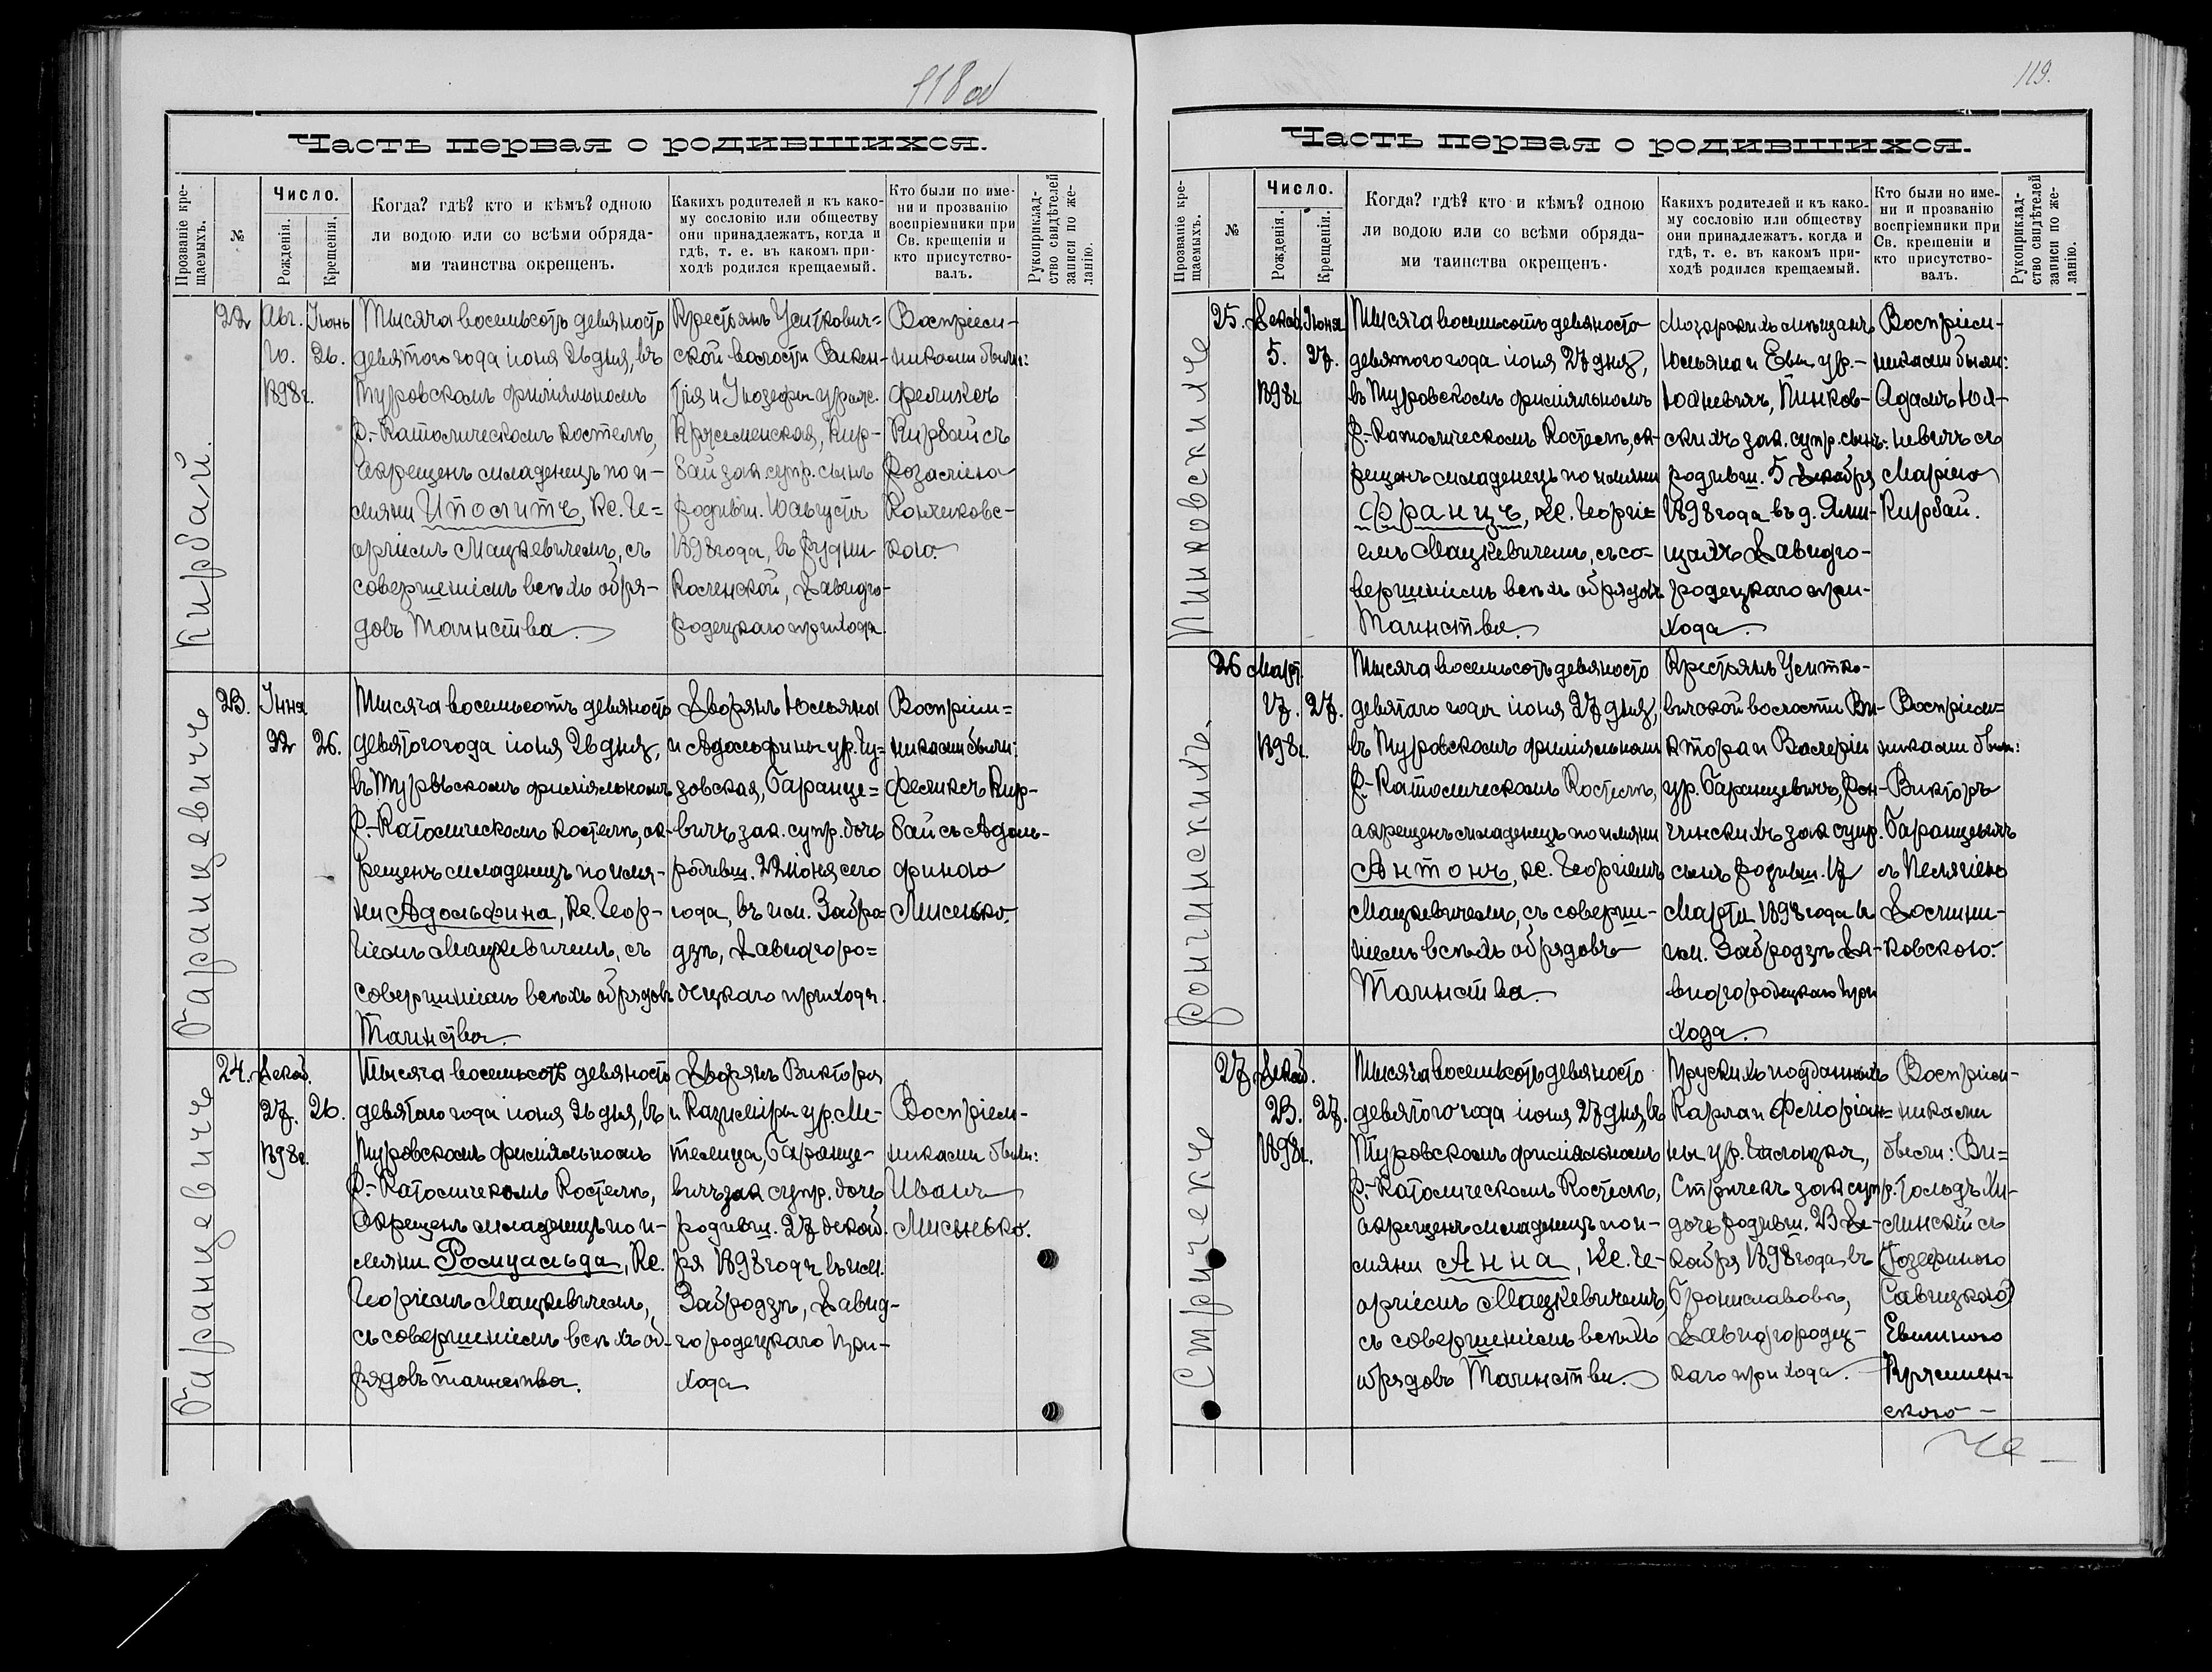 118 об
Часть первая о родившихся.
Прозваніе кре-
щаемыхъ.
№
Число.
Рожденія.
Крещенія.
Когда? гдѣ? кто и кѣмъ? одною
ли водою или со всѣми обряда-
ми таинства окрещенъ.
Какихъ родителей и къ како-
му сословію или обществу
они принадлежатъ, когда и
гдѣ, т. е. въ какомъ при-
ходѣ родился крещаемый.
Кто были по име-
ни и прозванію
воспріемники при
Св. крещеніи и
кто присутство-
валъ.
Рукоприклад-
ство свидѣтелей
записи по же-
ланію.
Кирбай.
22
Авг.
10.
1898г.
Іюнь
26.
Тысяча восемьсотъ девяносто
девятого года іюня 26 дня, въ
Туровскомъ филіяльномъ
Р.-Католическомъ Костелѣ,
окрещенъ младенецъ по и-
мяни Иполитъ, Кс. Ге-
оргіемъ Мацкевичемъ, съ
совершеніемъ всѣхъ обря-
довъ Таинства.
Крестьянъ Уситкович-
ской волости Викен-
тія и Іюзефы урож.
Кржеменская, Кир-
бай зак. супр. сынъ
родивш. 10 августа
1898 года, въ Рудни
Коленской, Давидго-
родецкаго прихода.
Воспріем-
никами были:
Феликсъ
Кирбай съ
Розаліею
ского.
Баранцевичъ
23.
Іюня
22
26.
Тысяча восемьсотъ девяносто
девятого года іюня 26 дня,
въ Туровскомъ филіяльномъ
Р.-Католическомъ Костелѣ, ок-
рещенъ младенецъ по имя-
ни Адольфина, Кс. Геор-
гіемъ Мацкевичемъ, съ
совершеніемъ всѣхъ обрядовъ
Таинства.
Дворянъ Юльяна
и Адольфины ур. Гу-
зовская, Баранце-
вичъ зак. супр. дочь
родивш. 22 іюня сего
года, въ им. Забро-
дзѣ, Давидгоро-
децкаго прихода.
Воспріем-
никами были:
Феликсъ Кир-
бай съ Адоль-
финою
Лисенько.
Баранцевичъ
24.
Декаб.
27.
1898г.
26.
Тысяча восемьсотъ девяносто
девятаго года іюня 26 дня, въ
Туровскомъ филіяльномъ
Р.-Католическомъ Костелѣ,
окрещенъ младенецъ по и-
мяни Ромуальда, Кс.
Георгіемъ Мацкевичемъ,
съ совершеніемъ всѣхъ об-
рядовъ таинства.
Дворянъ Виктора
и Казиміры ур. Ми-
телица, Баранце-
вичъ зак. супр. дочь
родивш. 27 декаб-
ря 1898 года въ им.
Забродзѣ, Давид-
городецкаго при-
хода
Воспріем-
никами были:
Иванъ
Лисенько.
119.
Часть первая о родившихся.
Прозваніе кре-
щаемыхъ.
№
Число.
Рожденія.
Крещенія.
Когда? гдѣ? кто и кѣмъ? одною
ли водою или со всѣми обряда-
ми таинства окрещенъ.
Какихъ родителей и къ како-
му сословію или обществу
они принадлежатъ. когда и
гдѣ, т. е. въ какомъ при-
ходѣ родился крещаемый.
Кто были по име-
ни и прозванію
воспріемники при
Св. крещеніи и
кто присутство-
валъ.
Рукоприклад-
ство свидѣтелей
записи по же-
ланію.
25.
Декаб.
5.
1898г
Іюня
27.
Тысяча восемьсотъ девяносто
девятого года іюня 27 дня,
въ Туровскомъ филіяльномъ
Р.-Католическомъ Костелѣ, ок-
рещенъ младенецъ по имяни
Францъ, Кс. Георгіе-
емъ Мацкевичемъ, съ со-
вершеніемъ всѣхъ обрядовъ
Таинства.
Мозырскихъ мѣщанъ
Юльяна и Евы ур.-
Юхневичъ, Пинков-
скихъ зак. супр. сынъ.
родивш. 5 Декабря
1898 года въ д.
Давидго-
родецкаго при-
хода.
Воспріем-
никами были:
Адамъ Юх-
невичъ съ
Маріею
Кирбай.
26
Март.
17.
1898г.
27.
Тысяча восемьсотъ девяносто
девятаго года іюня 27 дня,
въ Туровскомъ филіяльномъ
Р.-Католическомъ Костелѣ,
окрещенъ младенецъ по имяни
Антонъ, Кс. Георгіемъ
Мацкевичемъ, съ соверше-
ніемъ всѣхъ обрядовъ
Таинства.
Крестьянъ Уситко-
вичской волости Ви-
ктора и Валеріи
ур. Баранцевичъ, Рон-
чинскихъ зак. супр.
сынъ родивш. 17
Марта 1898 года въ
им. Забродзѣ Да-
видгородецкаго при
хода.
Воспріем-
никами были:
Викторъ
Баранцевичъ
съ Пелягіею
ковского.
27
Декаб.
23.
1898г.
27.
Тысяча восемьсотъ девяносто
девятого года іюня 27 дня, въ
Туровскомъ филіяльномъ
Р.-Католическомъ Костелѣ,
окрещенъ младенецъ по и-
мяни Анна, Кс. Ге-
оргіемъ Мацкевичемъ,
съ совершеніемъ всѣхъ
обрядовъ Таинства.
Прускихъ подданныхъ
Карла и Флоріан-
ны ур.
Стричекъ зак супр.
дочь родивш. 23 Де-
кабря 1898 года, въ
Брониславовѣ,
Давидгородец-
каго прихода.
Воспріем-
никами
были: Ви-
тольдъ
съ
Іозефиною
Савицкою
Евелиною
Кржемен-
ского